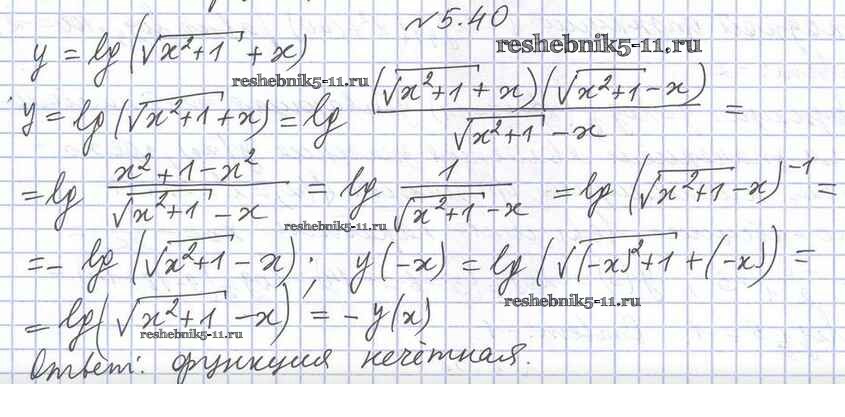 №5.40
y = lg(√(x²+1) + x)
reshebnik5-11.ru
reshebnik5-11.ru
y = lg(√(x²+1)+x) = lg ((√(x²+1)+x)(√(x²+1)-x))/(√(x²+1)-x) =
= lg (x²+1-x²)/(√(x²+1)-x) = lg 1/(√(x²+1)-x) = lg(√(x²+1)-x)⁻¹ =
reshebnik5-11.ru
= - lg(√(x²+1)-x). y(-x) = lg(√((-x)²+1)+(-x)) =
reshebnik5-11.ru
= lg(√(x²+1)-x) = -y(x)
reshebnik5-11.ru
Ответ: функция нечётная.